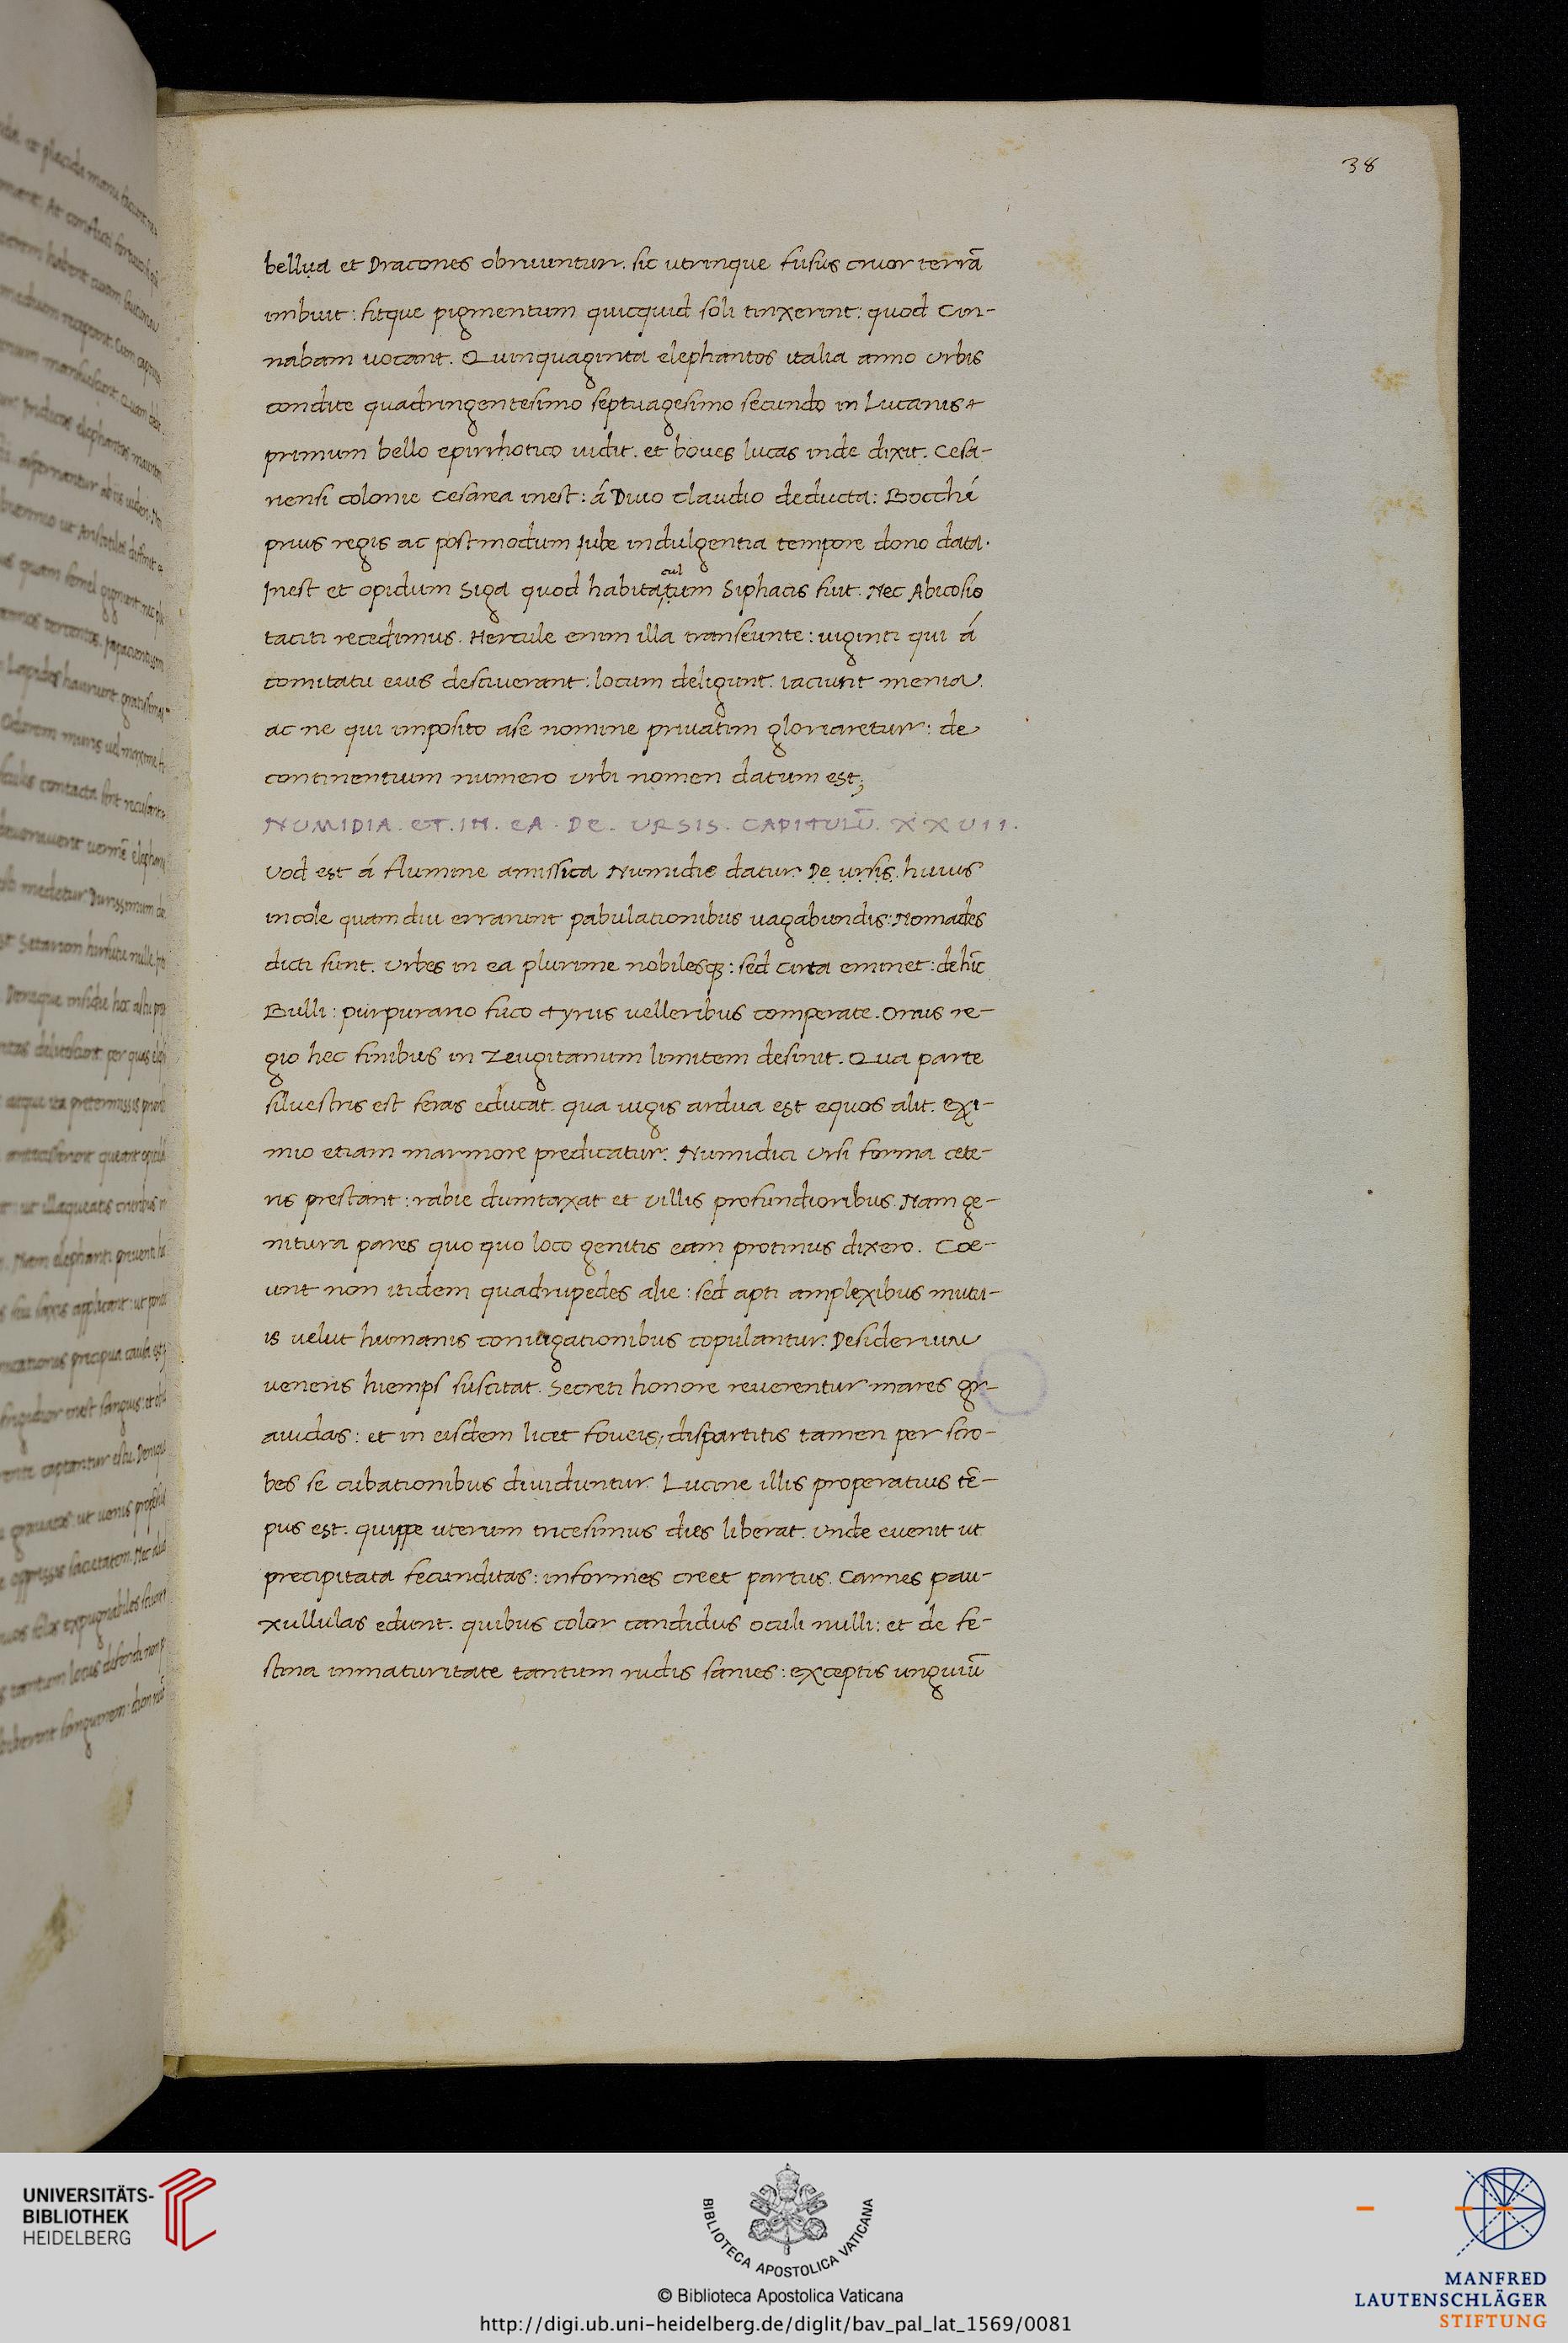 38
bellua et Dracones obruuntur. sic utrinque fusus cruor terrā
imbuit: fitque pigmentum quicquid soli tinxerint: quod Cin-
nabam uocant. Quinquaginta elephantos italia anno urbis
condite quadringentesimo septuagesimo secundo in Lucanis
primum bello epirrhotico uidit. et boues lucas inde dixit. Cesa-
riensi colonie Cesarea inest: á Diuo claudio deducta: Bocchi
prius regis ac postmodum iube indulgentia tempore dono data.
Inest et opidum Siga quod habitatum Siphacis fuit. Nec Abicosio
cul
taciti recedimus. Hercule enim illa transeunte: uiginti qui á
comitatu eius desciuerant: locum deligunt. iaciunt menia.
ac ne qui imposito ase nomine priuatim gloriaretur: de
continentium numero urbi nomen datum est;
NUMIDIA. ET. IN. EA. DE. URSIS. CAPITULŪ. XXVII.
Vod est á flumine amissica Numidie datur. De ursis. huius
incole quamdiu errarunt pabulationibus uagabundis: Nomades
dicti sunt. Urbes in ea plurime nobilesq3: sed cirta eminet: dehīc
Bulli: purpurario fuco tyrus uelleribus comperate. Omis re-
gio hec finibus in zeugitanum limitem desinit. Qua parte
siluestris est feras educat. qua iugis ardua est equos alit. exi-
mio etiam marmore predicatur. Numidici ursi forma cete-
ris prestant: rabie dumtaxat et uillis profundioribus. Nam ge-
nitura pares quo quo loco genitis eam protinus dixero. Coe-
unt non itidem quadrupedes alie: sed apti amplexibus mutu-
is uelut humanis coniugationibus copulantur. Desiderium
ueneris hiemps suscitat. Secreti honore reuerentur mares gr-
auidas: et in eisdem licet foueis, dispartitis tamen per scro-
bes se cubationibus diuiduntur. Lucine illis properatius tē-
pus est. quippe uterum tricesimus dies liberat. unde euenit ut
precipitata fecunditas: informes creet partus. Carnes pau-
xullulas edunt. quibus color candidus oculi nulli: et de fe-
stina inmaturitate tantum rudis sanies: exceptis unguiū
UNIVERSITÄTS-
BIBLIOTHEK
HEIDELBERG
BIBLIOTECA APOSTOLICA VATICANA
© Biblioteca Apostolica Vaticana
http://digi.ub.uni-heidelberg.de/diglit/bav_pal_lat_1569/0081
MANFRED
LAUTENSCHLÄGER
STIFTUNG